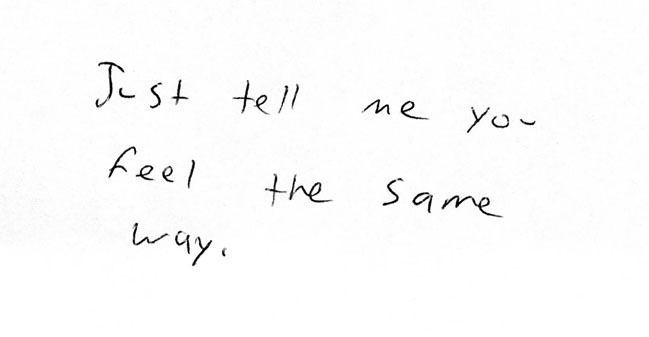 Just tell me you
feel the same
way.